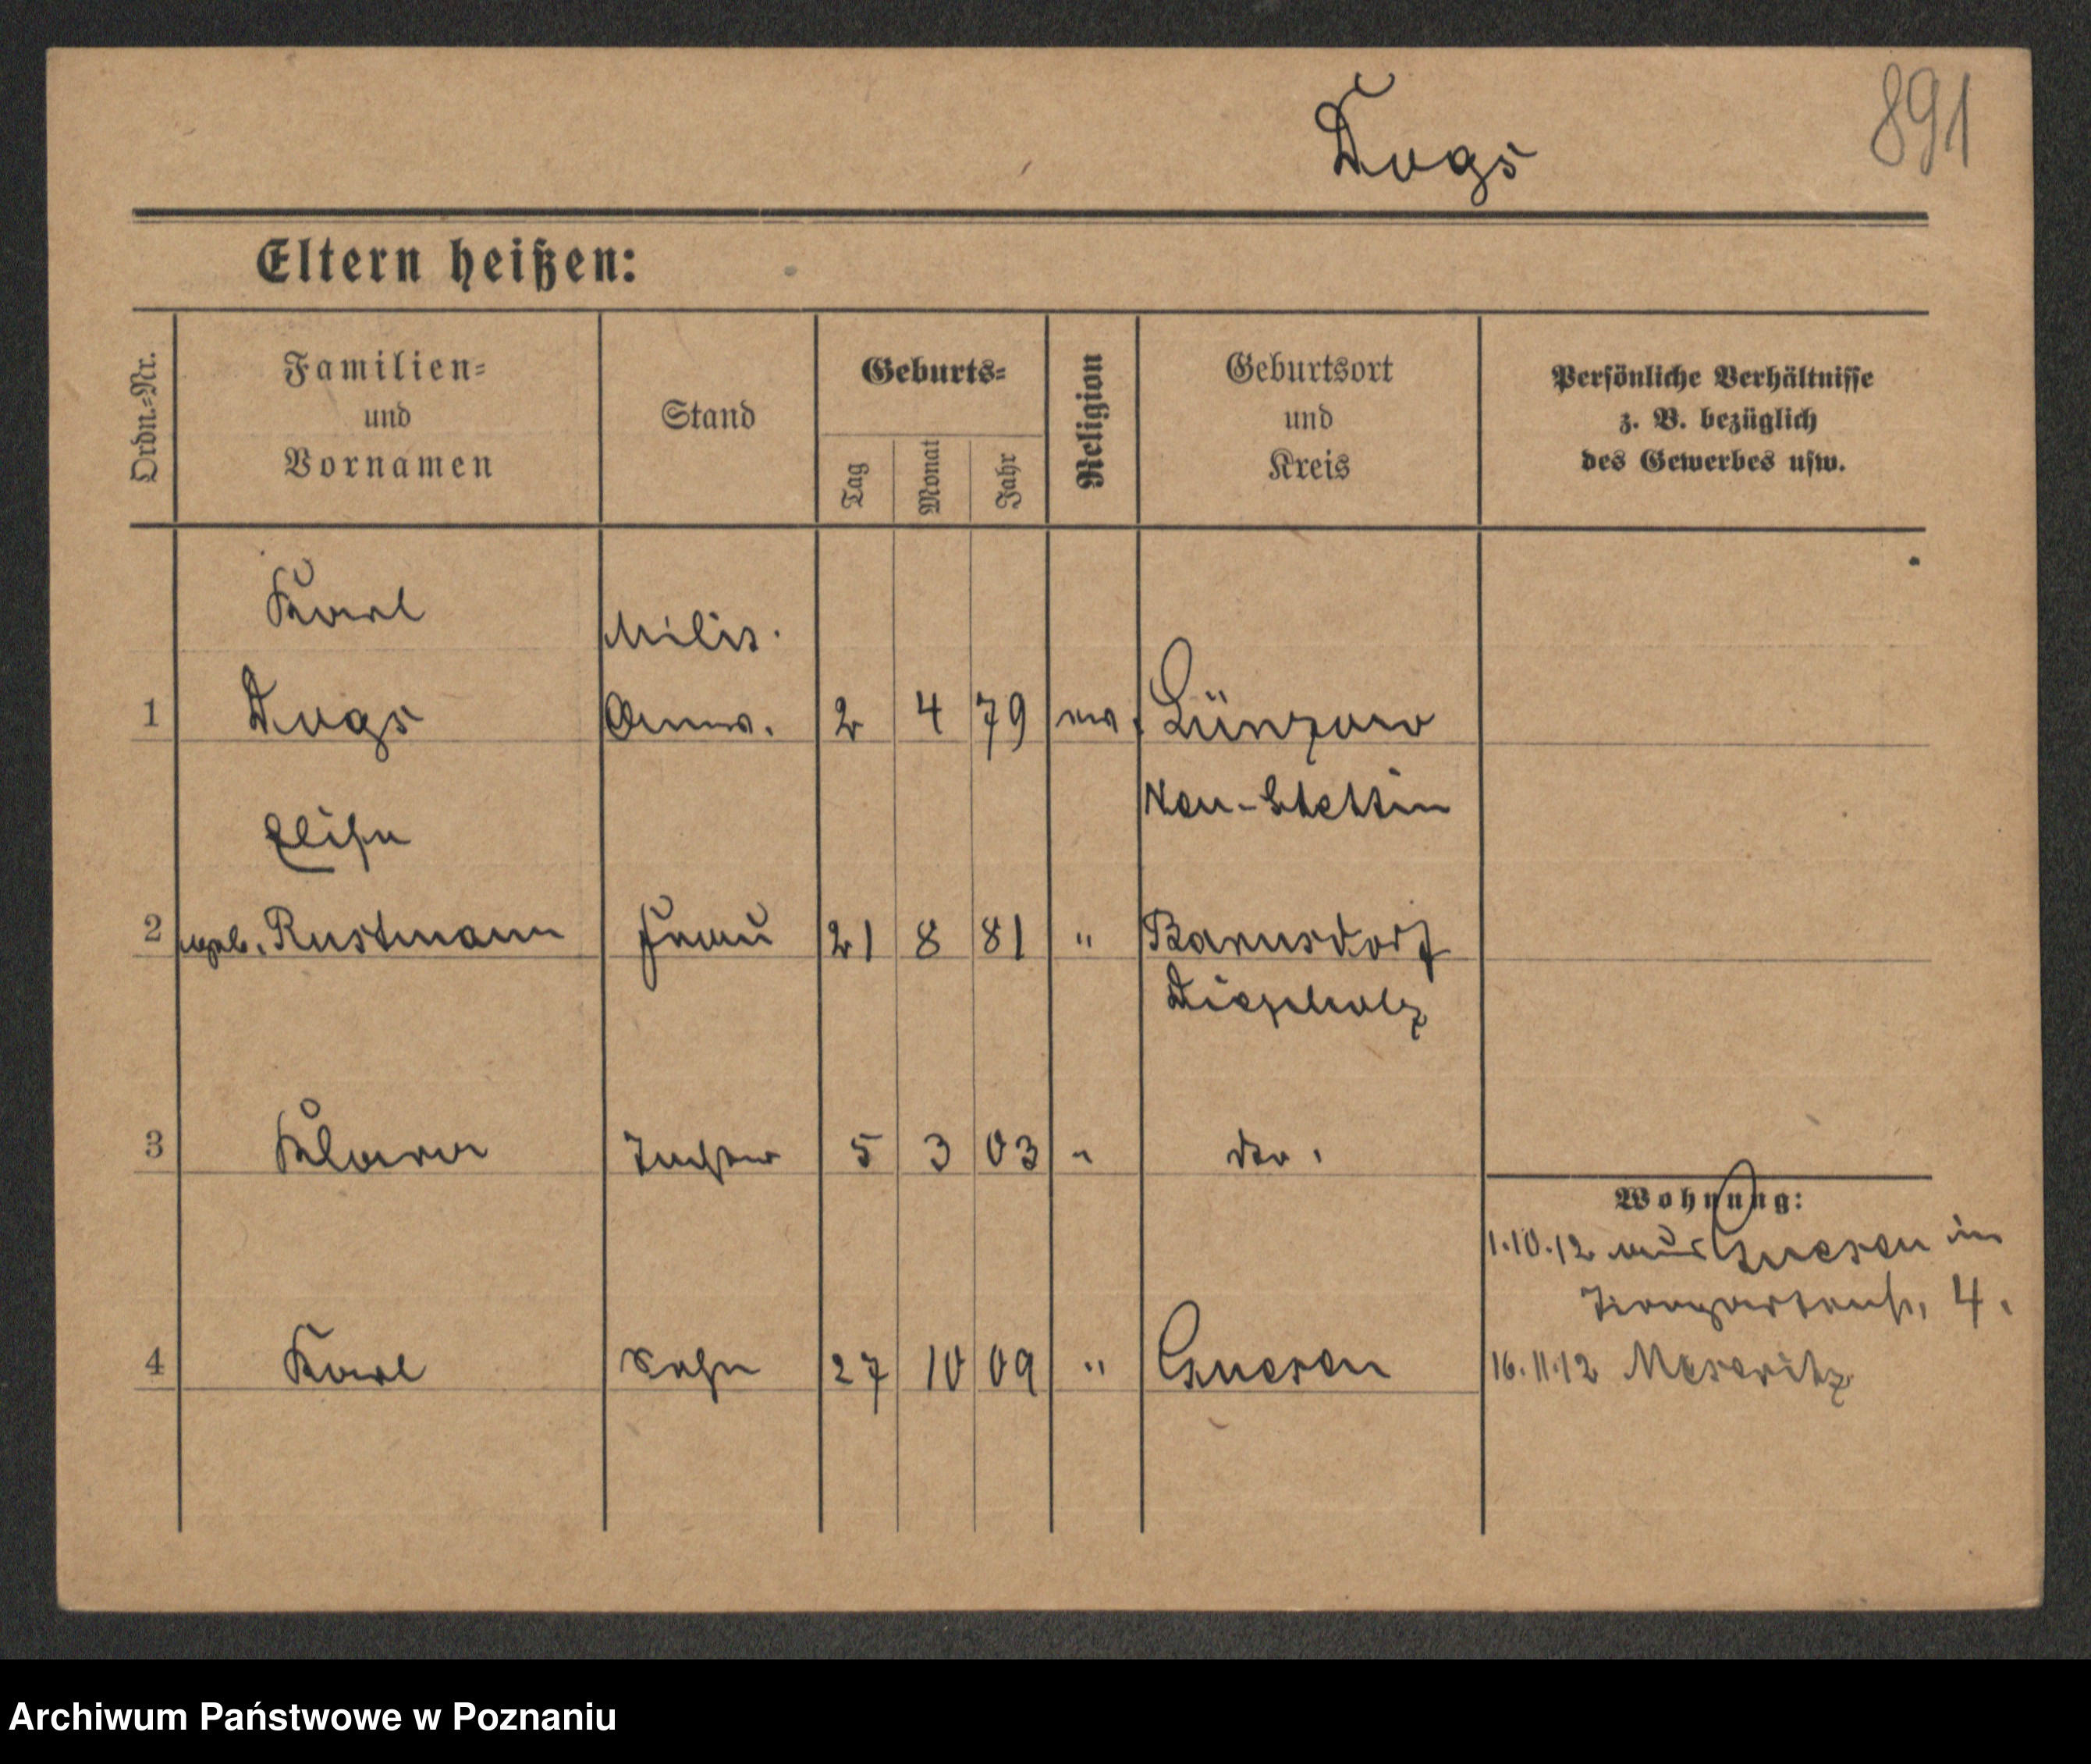 Dogs
891
Eltern heißen:
Ordn.=Nr.
Familien=
und
Vornamen
Stand
Geburts=
Tag
Monat
Jahr
Religion
Geburtsort
und
Kreis
Persönliche Verhältnisse
z. B. bezüglich
des Gewerbes usw.
Karl
Milit.
1 Dogs Anw. 2 4 79 ev. Lünzow
Neu-Stettin
Elise
2 geb. Rustmann Frau 21 8 81 " Barnsdorf
Diepholz
3 Klara Tochter 5 3 03 " do.
Wohnung:
1.10.12 aus Gnesen in
Tiergartenstr. 4.
4 Karl Sohn 27 10 09 " Gnesen
16.11.12 Meseritz
Archiwum Państwowe w Poznaniu